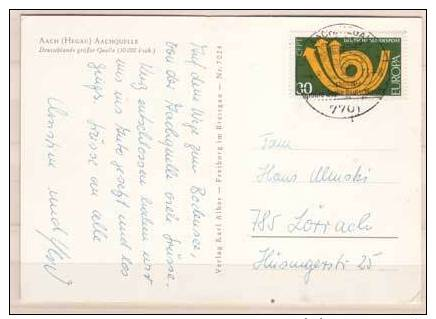 AACH (HEGAU) AACHQUELLE
Deutschlands größte Quelle (10 000 l/sek.)
Auf dem Wege zum Bodensee,
von der Aachquelle viele Grüsse.
Kurz entschlossen haben wir
uns ins Auto gesetzt und los
gings. Grüsse an alle
und
Verlag Karl Alber - Freiburg im Breisgau - Nr. 7024
DEUTSCHE BUNDESPOST
CEPT
EUROPA
30
7701
Fam.
Hans
785 Lörrach
Hüsingerstr. 25